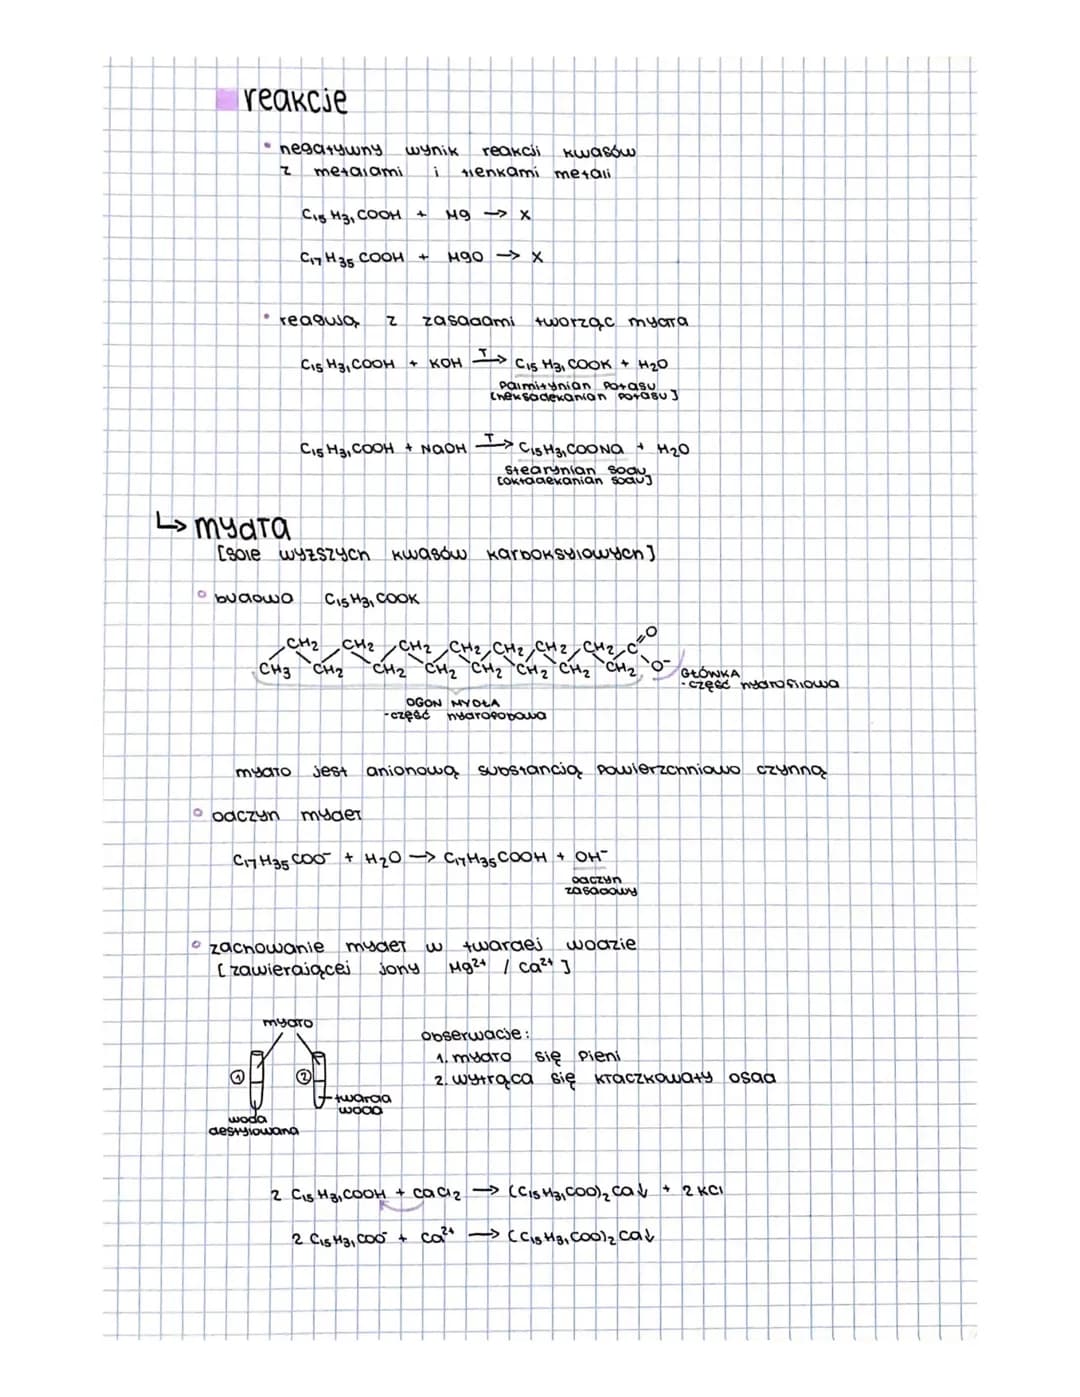 reakcje
• negatywny wynik reakcji kwasów
z metalami i tlenkami metali
C₁₅H₃₁COOH + Mg → X
C₁₇H₃₅COOH + MgO → X
• reagują z zasadami tworząc mydła
C₁₅H₃₁COOH + KOH —T→ C₁₅H₃₁COOK + H₂O
palmitynian potasu
[heksadekanian potasu]
C₁₅H₃₁COOH + NaOH —T→ C₁₅H₃₁COONa + H₂O
stearynian sodu
[oktadekanian sodu]
↳ mydła
[sole wyższych kwasów karboksylowych]
° budowa C₁₅H₃₁COOK
CH₂ CH₂ CH₂ CH₂ CH₂ CH₂ CH₂ C=O
CH₃ CH₂ CH₂ CH₂ CH₂ CH₂ CH₂ CH₂ O⁻
GŁÓWKA
- część hydrofilowa
OGON MYDŁA
- część hydrofobowa
mydło jest anionową substancją powierzchniowo czynną
° odczyn mydeł
C₁₇H₃₅COO⁻ + H₂O → C₁₇H₃₅COOH + OH⁻
odczyn
zasadowy
° zachowanie mydeł w twardej wodzie
[zawierającej jony Mg²⁺ / Ca²⁺]
mydło
① ②
twarda
woda
woda
destylowana
obserwacje:
1. mydło się pieni
2. wytrąca się kłaczkowaty osad
2 C₁₅H₃₁COOH + CaCl₂ → (C₁₅H₃₁COO)₂Ca↓ + 2 KCl
2 C₁₅H₃₁COO⁻ + Ca²⁺ → (C₁₅H₃₁COO)₂Ca↓